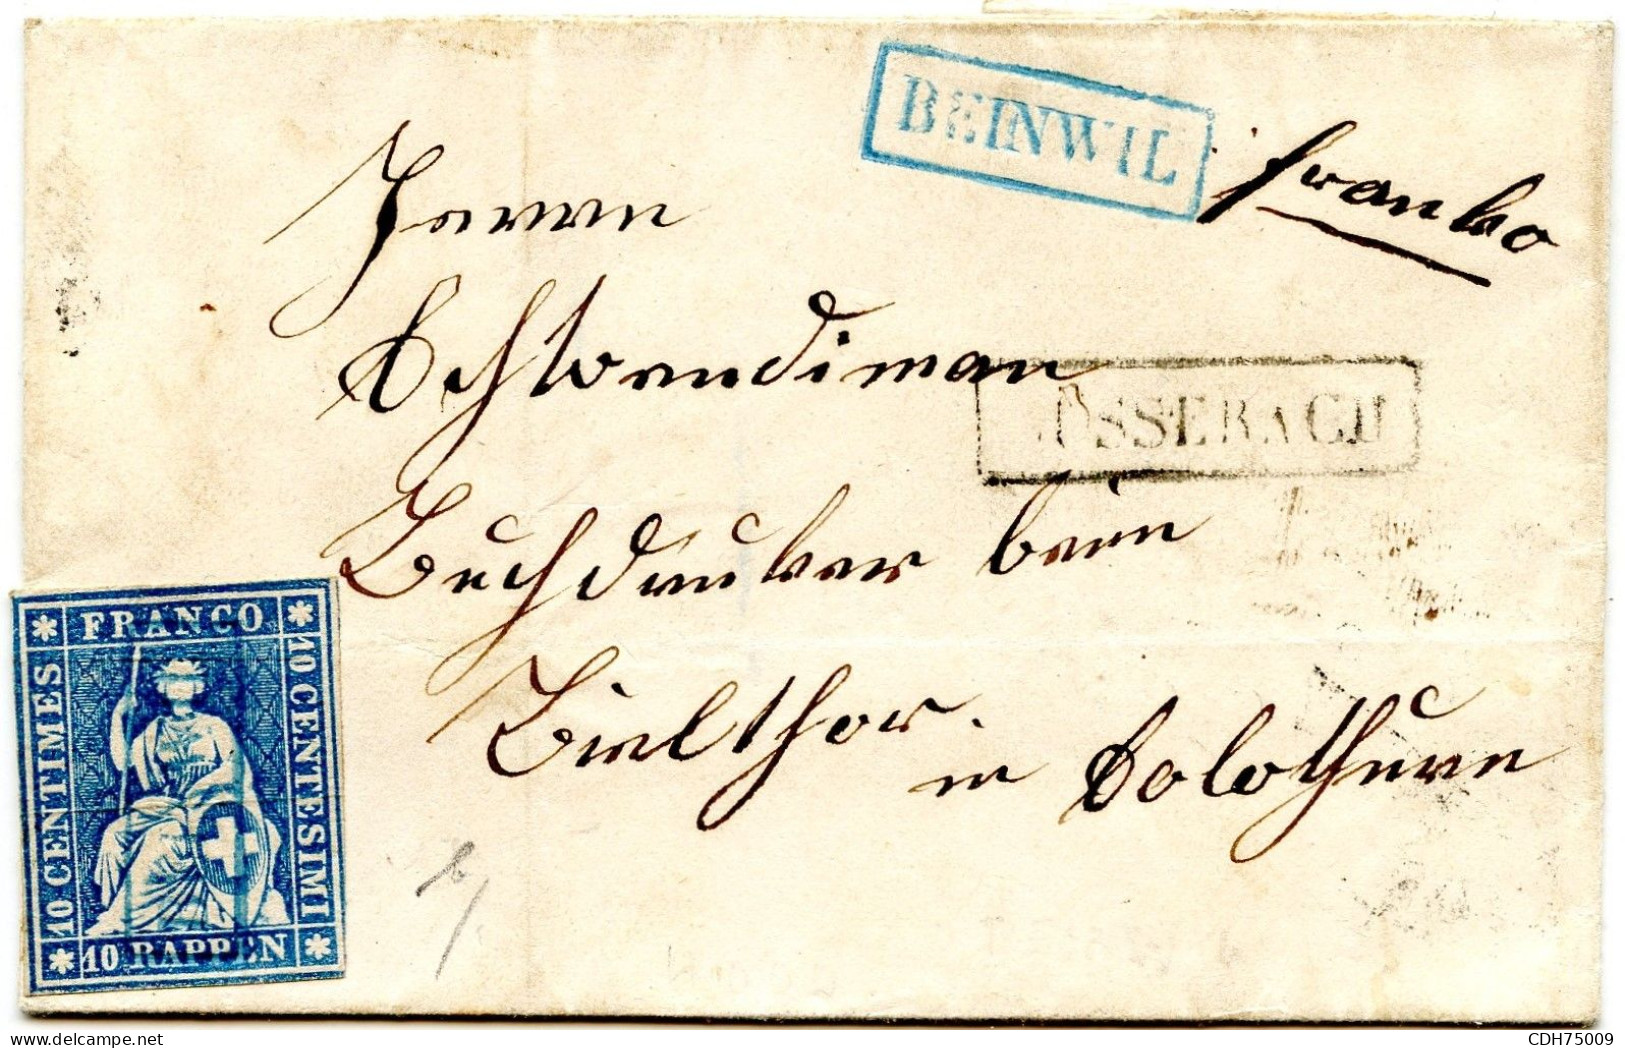 BEINWIL
franko
Herrn
Schwendiman
ÜSSERACH
Buchdruker beim
Bielthor.
in Solothurn
FRANCO
10 CENTIMES
10 CENTESIMI
10 RAPPEN
CDH75009